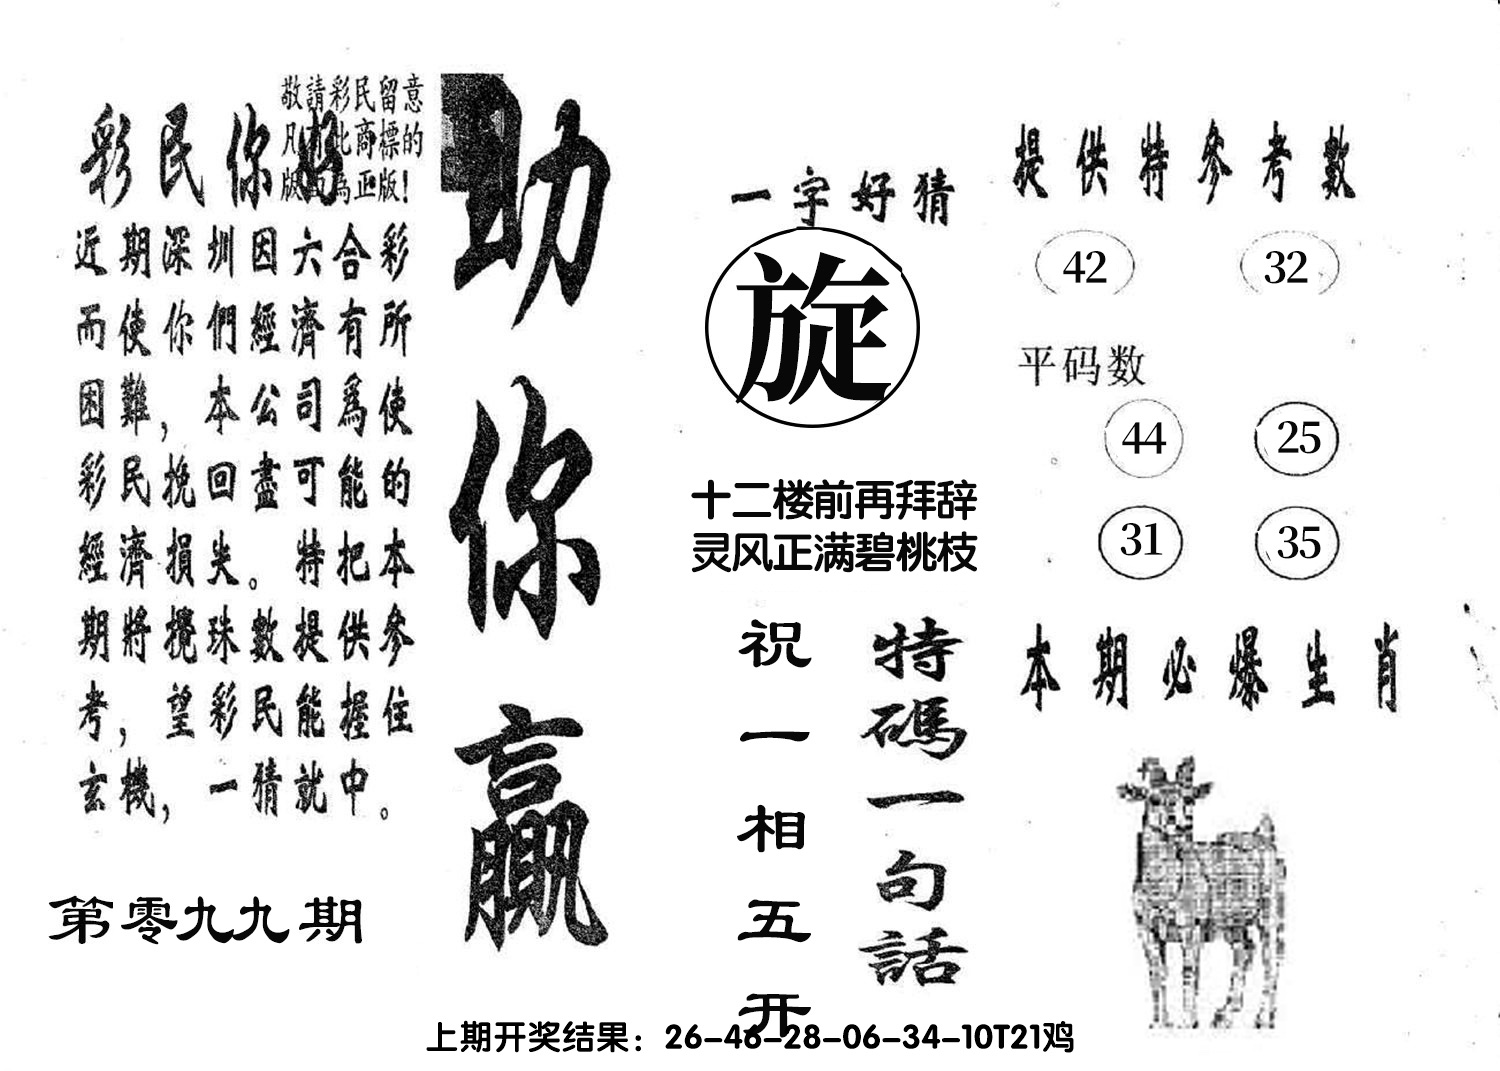 敬請彩民留意
凡有此商標的
版面為正版！
彩民你好
近期深圳因六合彩
而使你們經濟有所
困難，本公司爲使
彩民挽回盡可能的
經濟損失。特把本
期將攪珠數提供參
考，望彩民能握住
玄機，一猜就中。
第零九九期
助你贏
一字好猜
旋
十二楼前再拜辞
灵风正满碧桃枝
特碼一句話
祝一相五开
提供特參考數
42 32
平码数
44 25
31 35
本期必爆生肖
上期开奖结果：26-46-28-06-34-10T21鸡